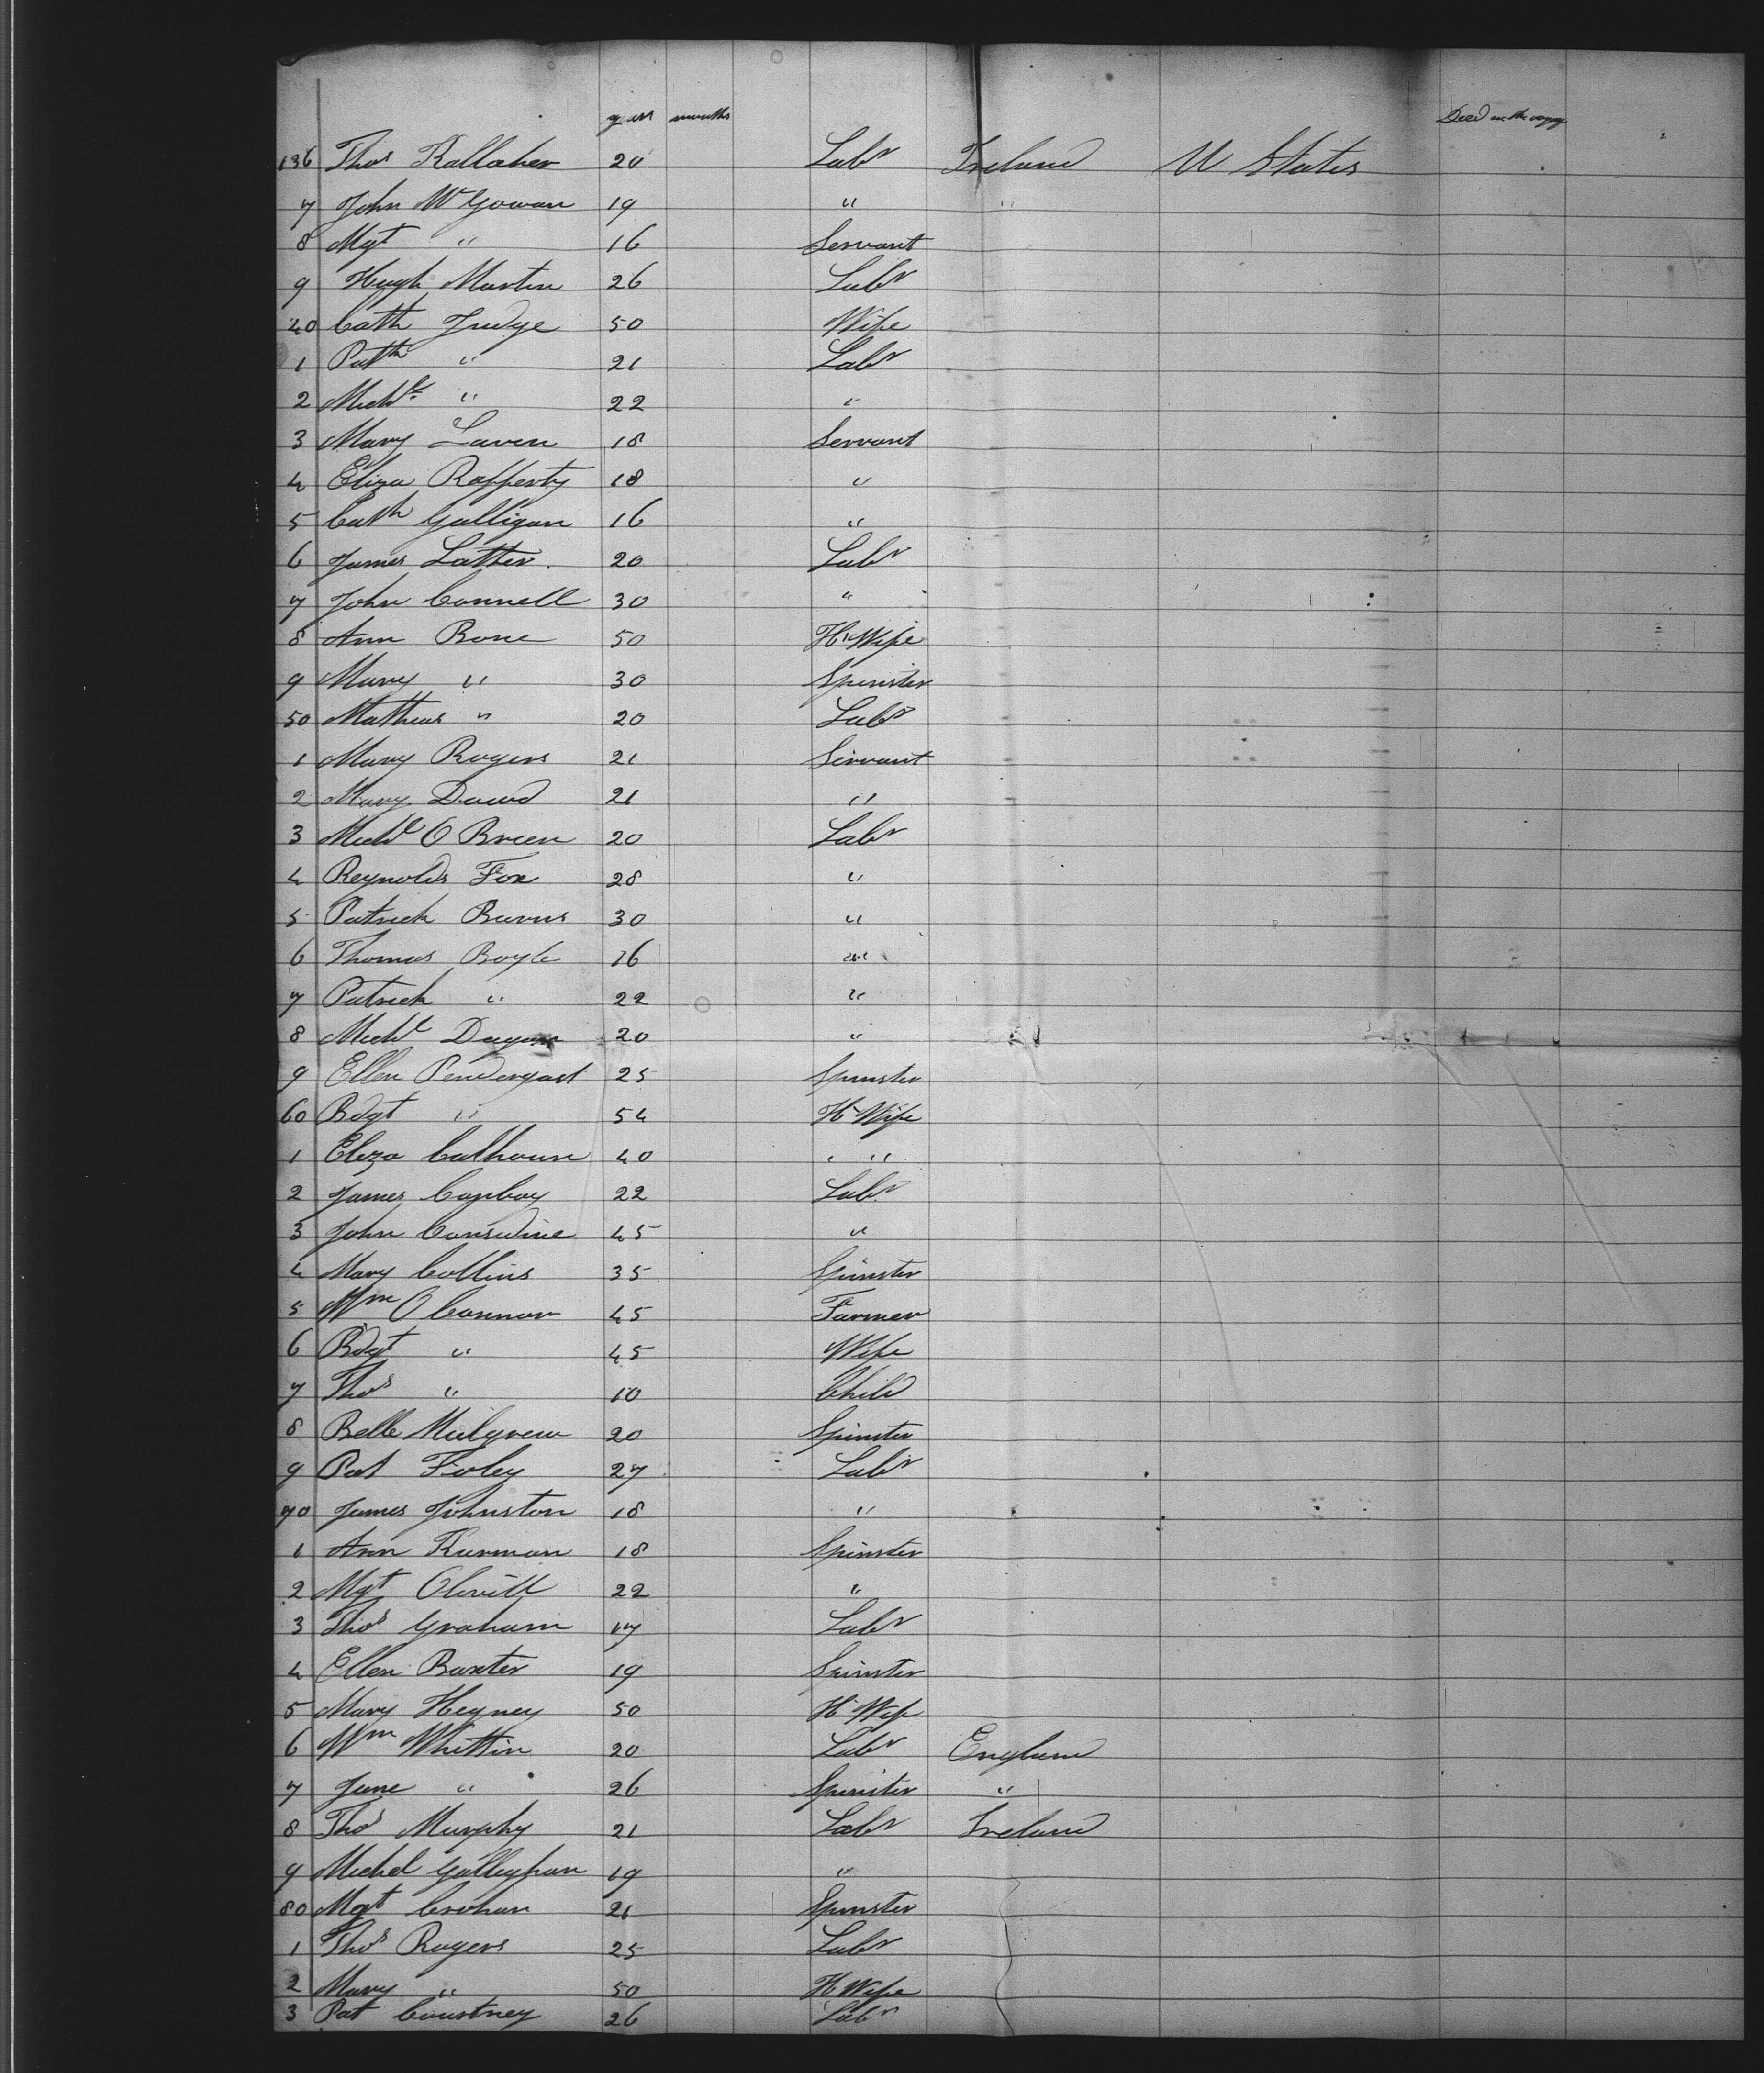 years months Died on the voyage
136 Thos Kallaher 20 Labr Ireland U States
7 John McGowan 19 " "
8 Mgt " 16 Servant
9 Hugh Martin 26 Labr
40 Cath Judge 50 Wife
1 Patk " 21 Labr
2 Michl " 22 "
3 Mary Laven 18 Servant
4 Eliza Rafferty 18 "
5 Cath Galligan 16 "
6 James Latter 20 Labr
7 John Connell 30 "
8 Ann Bone 50 H Wife
9 Mary " 30 Spinster
50 Mathew " 20 Labr
1 Mary Rogers 21 Servant
2 Mary Dowd 21 "
3 Michl O Brien 20 Labr
4 Reynolds Fox 28 "
5 Patrick Burns 30 "
6 Thomas Boyle 16 "
7 Patrick " 22 "
8 Michl 20 "
9 Ellen Pendergast 25 Spinster
60 Bdgt " 54 H Wife
1 Eliza Calhoun 40 " "
2 James Conboy 22 Labr
3 John Considine 45 "
4 Mary Collins 35 Spinster
5 Wm O Connor 45 Farmer
6 Bdgt " 45 Wife
7 Thos " 10 Child
8 Belle Mulgrew 20 Spinster
9 Pat Foley 27 Labr
70 James Johnston 18 "
1 Ann Kurman 18 Spinster
2 Mgt 22 "
3 Thos Graham 17 Labr
4 Ellen Baxter 19 Spinster
5 Mary Hegney 50 H Wife
6 Wm Whittin 20 Labr England
7 Jane " 26 Spinster "
8 Thos Murphy 21 Labr Ireland
9 Michel Galleghan 19 "
80 Mgt Crohan 21 Spinster
1 Thos Rogers 25 Labr
2 Mary " 50 H Wife
3 Pat Courtney 26 Labr